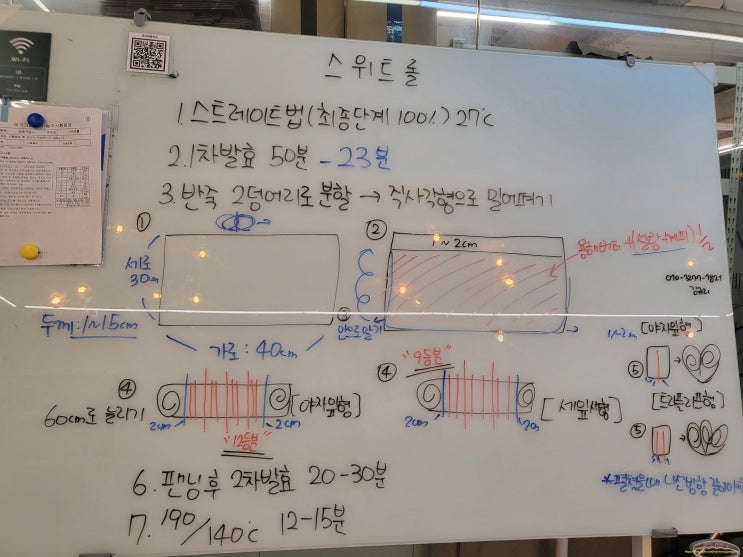 Wi-Fi
ID
PW
스위트롤
1. 스트레이트법 (최종단계 100%) 27℃
2. 1차발효 50분 - 23분
3. 반죽 2덩어리로 분할 → 직사각형으로 밀어펴기
①
세로
30cm
두께: 1~1.5cm
가로: 40cm
②
1~2cm
용해버터 +(설탕+계피) 1/2
③
안으로말기
④
60cm로 늘리기
2cm
2cm
"12등분"
[야자잎형]
"9등분"
④
2cm
2cm
[세잎새형]
1~2cm
[야자잎형]
⑤
[트리플리프형]
⑤
6. 팬닝 후 2차발효 20-30분
7. 190/140℃ 12-15분